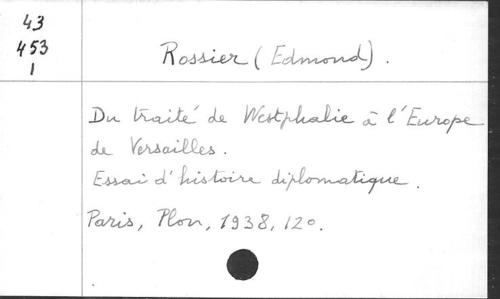 43
453
1
Rossier (Edmond).
Du traité de Westphalie à l'Europe
de Versailles.
Essai d'histoire diplomatique.
Paris, Plon, 1938, 12o.